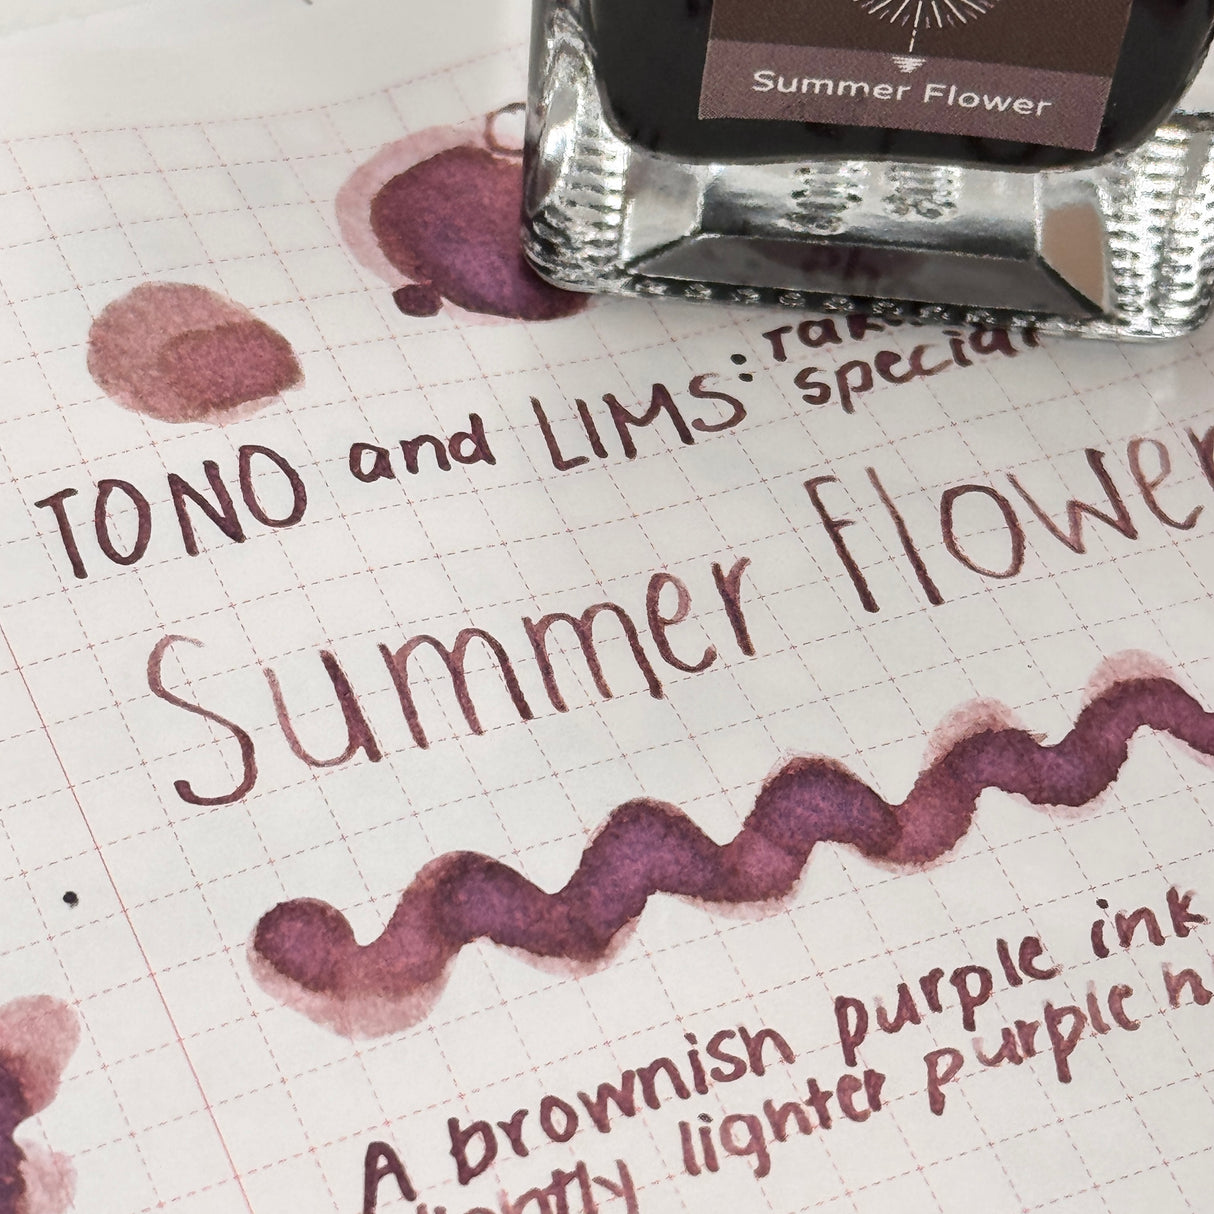 Summer Flower
TONO and LIMS: 
special
Summer Flower
A brownish purple ink
lighter purple